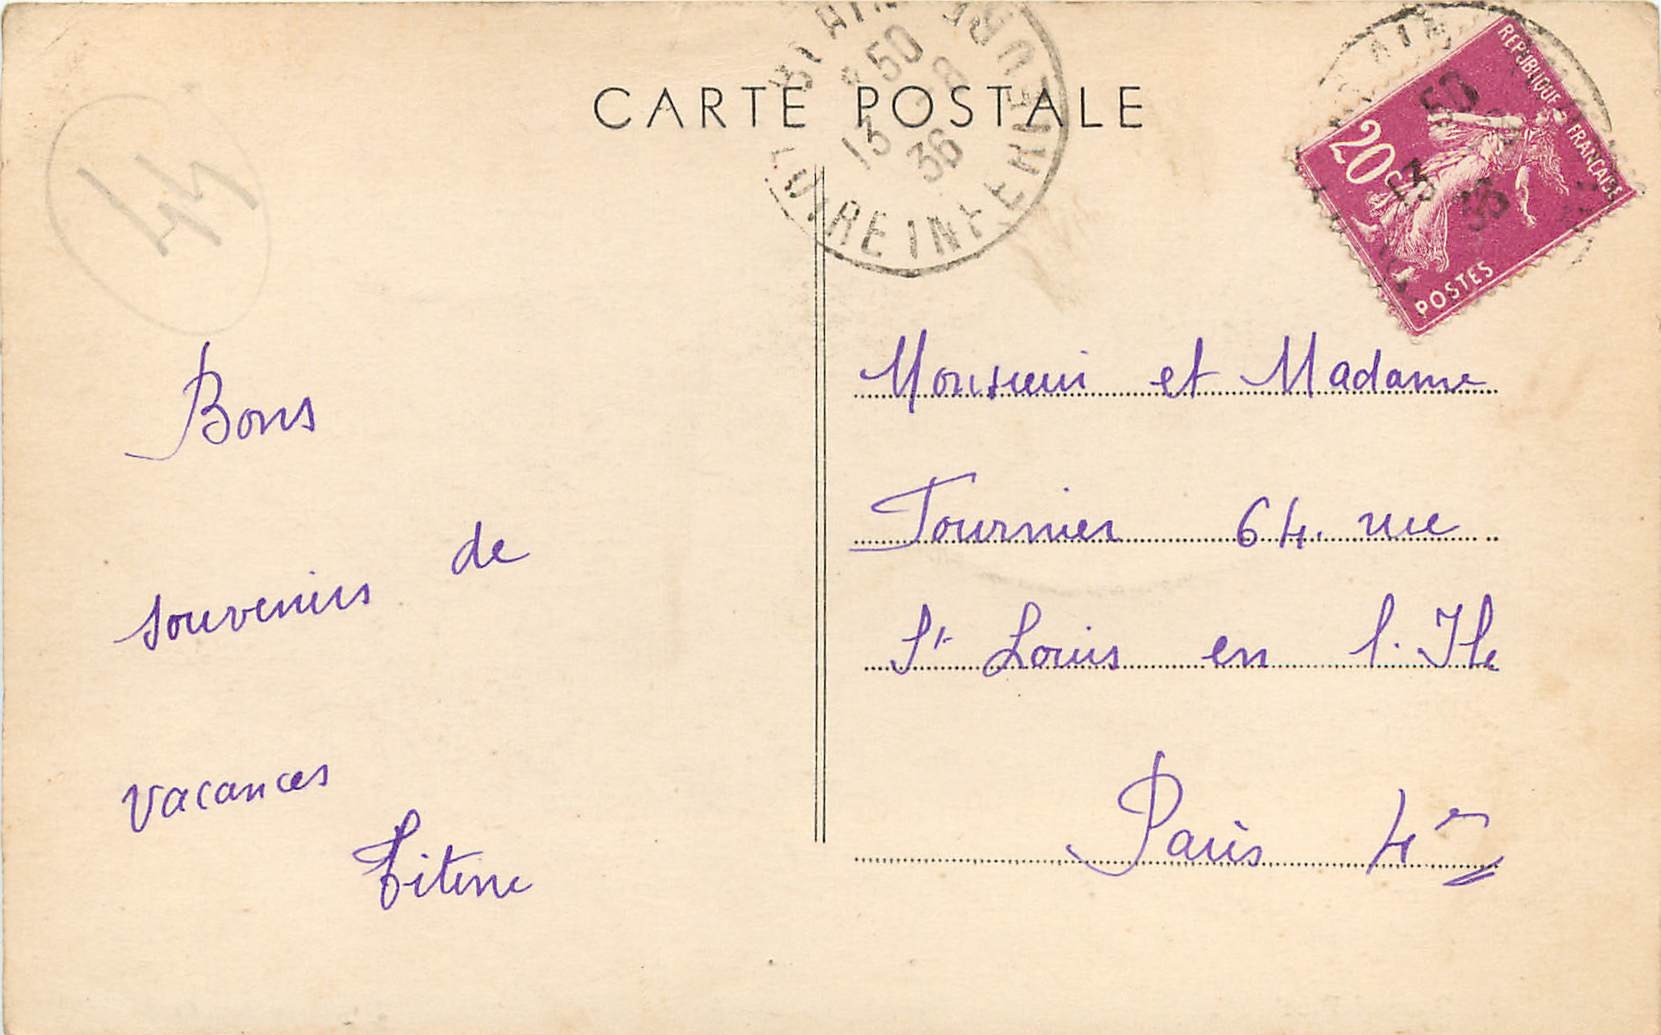 CARTE POSTALE
BLAIN
50
13 -8
36
LOIRE INFERIEURE
REPUBLIQUE FRANÇAISE
20c
POSTES
44
Bons
souvenirs de
vacances
Titine
Monsieur et Madame
Tournier 64. rue
St Louis en l'Ile
Paris 4e